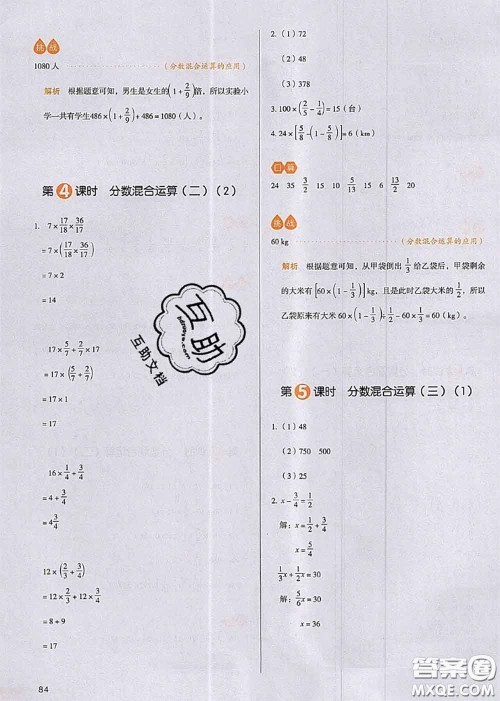 挑战
1080 人 (分数混合运算的应用)
解析 根据题意可知，男生是女生的(1+2/9)倍，所以实验小
学一共有学生486×(1+2/9)+486=1080（人）。
第4课时 分数混合运算（二）（2）
1. 7×17/18×36/17
=7×(17/18×36/17)
=7×2
=14
17×5/7+2/7×17
=17×(5/7+2/7)
=17×1
=17
16×1/4+3/4
=4+3/4
=4 3/4
12×(2/3+3/4)
=12×2/3+12×3/4
=8+9
=17
84
2.（1）72
（2）378
（3）48
3. 100×(2/5-1/4)=15（台）
4. 24×[5/8-(1-5/8)]=6（km）
口算
24 35 3/2 10 15/2 15 6 13/2 20
挑战
60 kg (分数混合运算的应用)
解析 根据题意可知，从甲袋倒出1/3给乙袋后，甲袋剩余
的大米有[60×(1-1/3)]kg，且此时乙袋大米的1/2，所以
乙袋原来有大米60×(1-1/3)÷1/2-60×1/3=60（kg）。
第5课时 分数混合运算（三）（1）
1.（1）48
（2）750 500
（3）48
2. x-3/4=1/2
解：x=1/2+3/4
x=5/4
1/3x+1/2x=30
解：5/6x=30
x=36
互助
hdmys.com
互助文档
答案圈
MXQE.COM